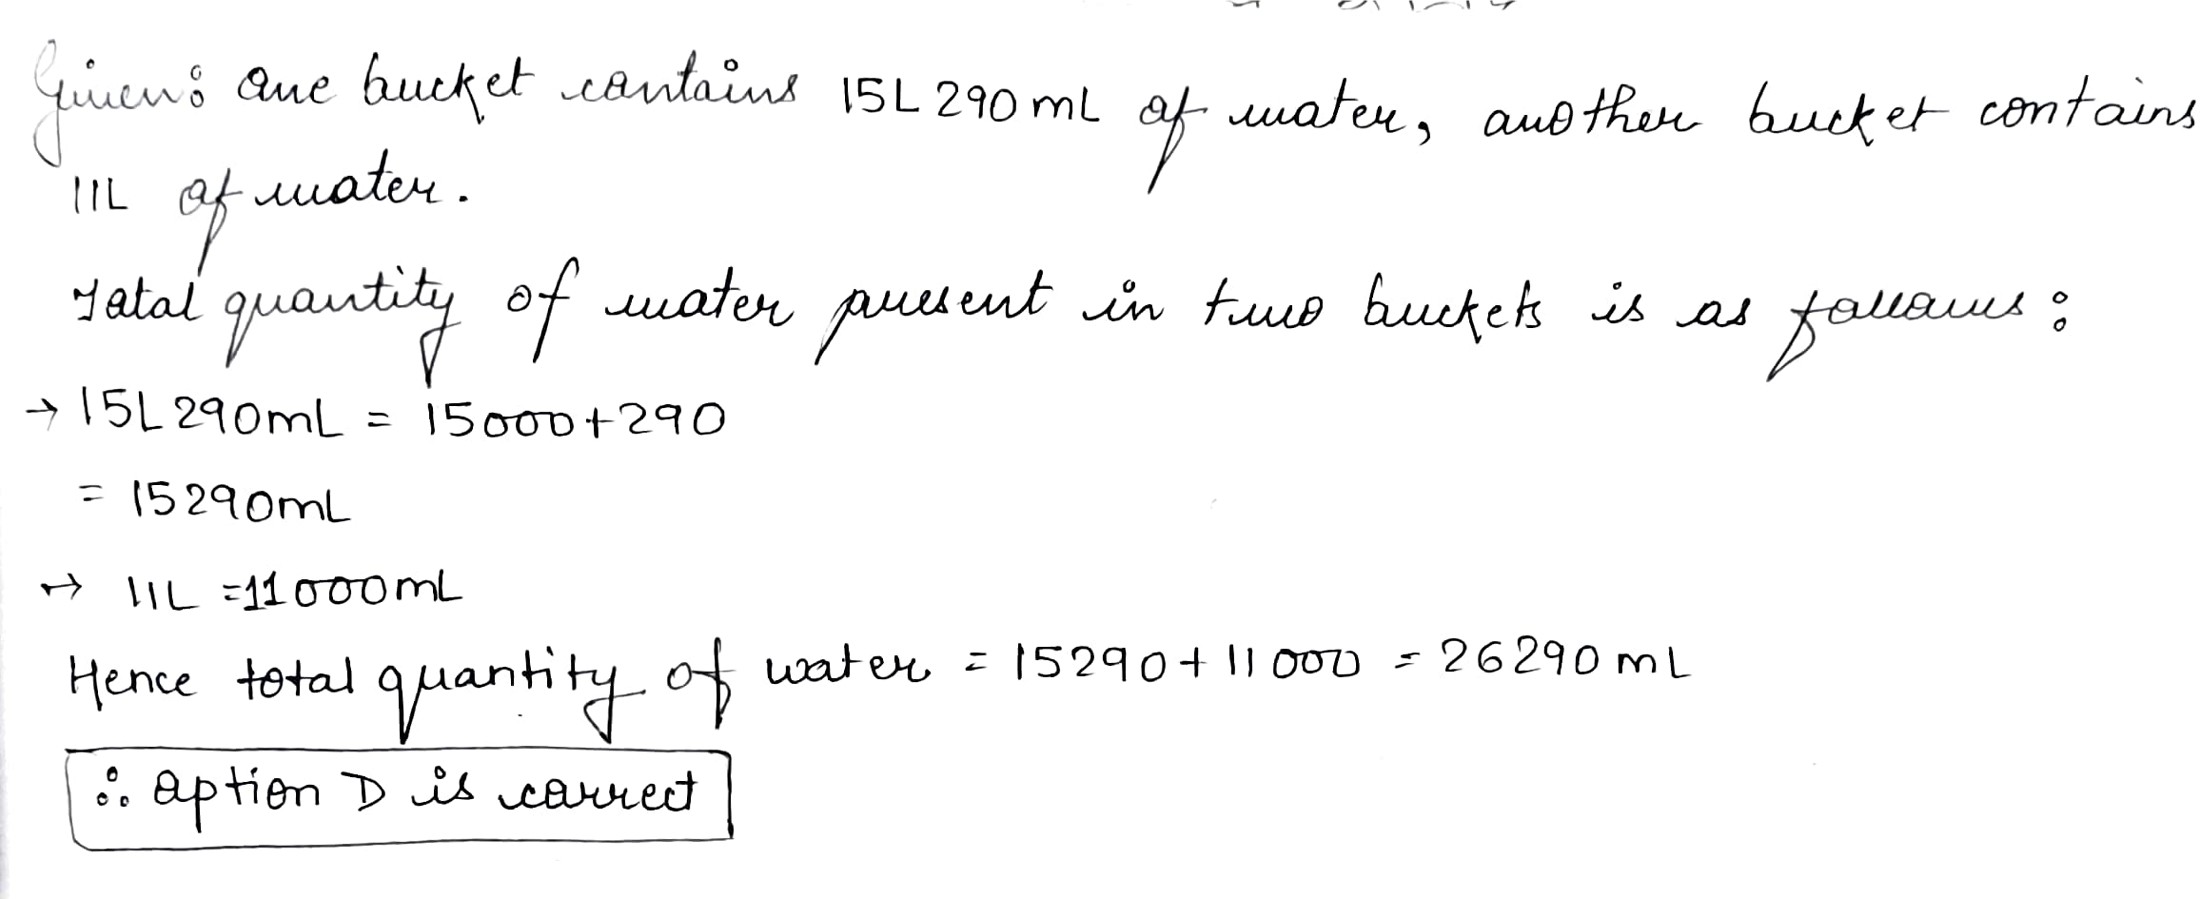 Given: One bucket contains 15L 290 mL of water, another bucket contains
11L of water.
Total quantity of water present in two buckets is as follows:
→ 15L 290mL = 15000+290
= 15290mL
→ 11L =11000mL
Hence total quantity of water = 15290+11000 = 26290 mL
∴ Option D is correct